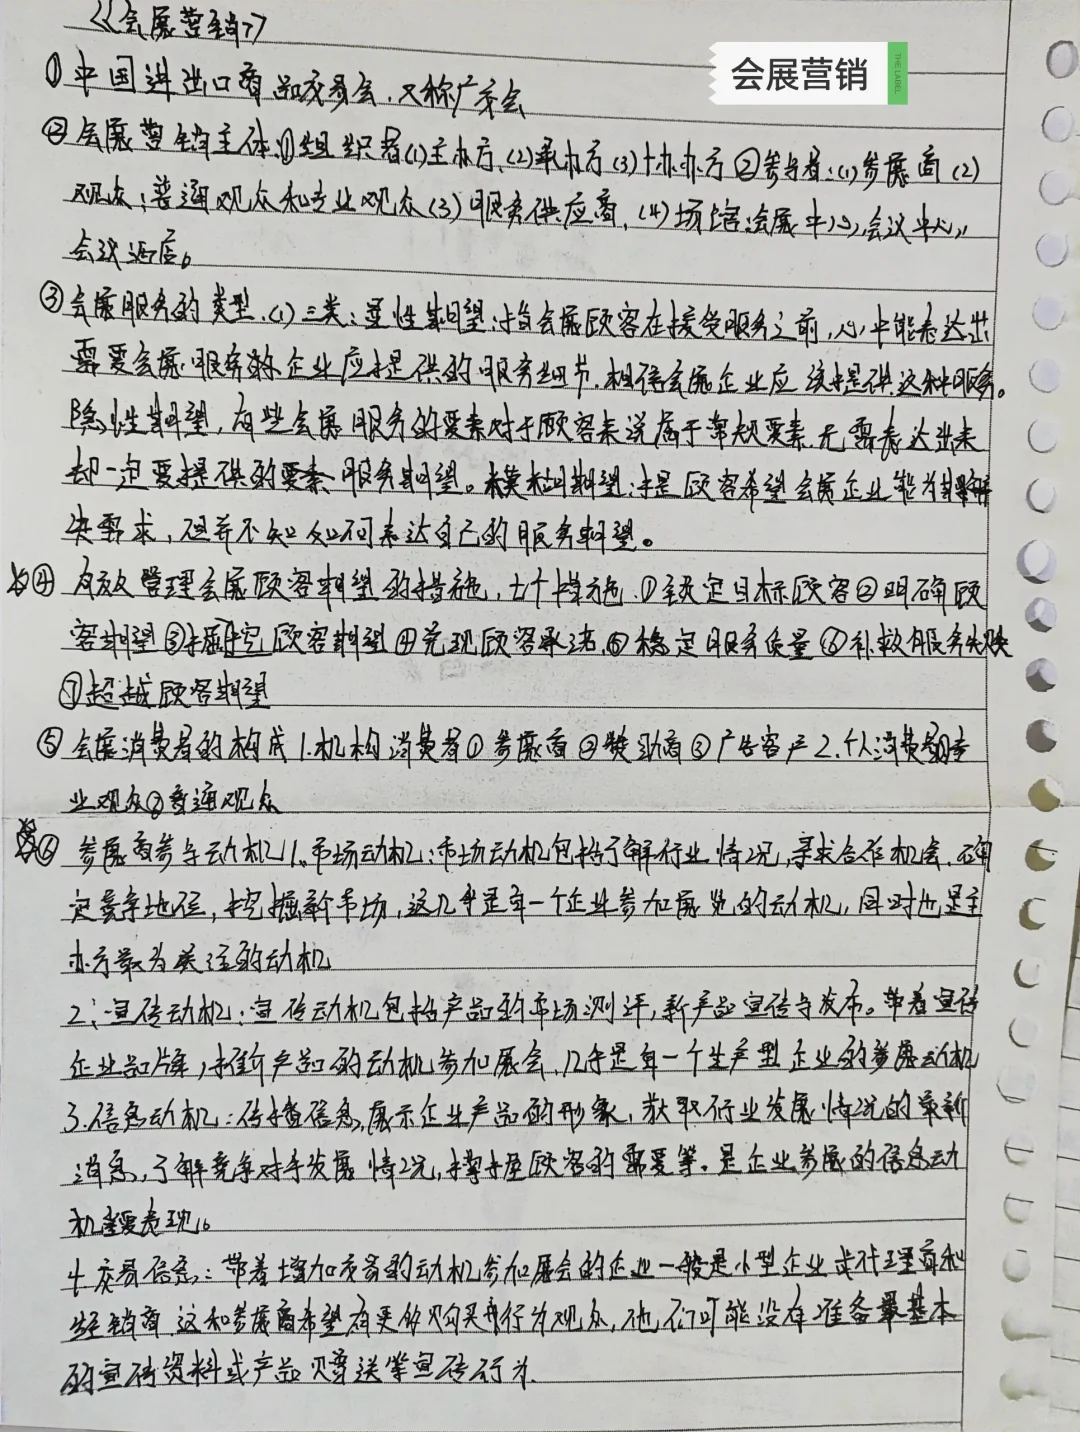 《会展营销》
会展营销
THE LABEL
①中国进出口商品交易会,又称广交会
②会展营销主体:①组织者(1)主办方,(2)承办方(3)协办方②参与者:(1)参展商(2)
观众:普通观众和专业观众(3)服务供应商,(4)场馆:会展中心,会议中心,
会议酒店。
③会展服务的类型.(1)三类:显性期望:指会展顾客在接受服务之前,心中能表达出
需要会展服务的企业应提供的服务细节,相信会展企业应该提供这种服务。
隐性期望,有些会展服务的要素对于顾客来说属于常规要素无需表达出来
却一定要提供的要素服务期望。模糊期望:指顾客希望会展企业能为其解
决需求,但并不知如何表达自己的服务期望。
☆④有效管理会展顾客期望的措施,七个措施.①锁定目标顾客②明确顾
客期望③ 顾客期望④兑现顾客承诺,⑤稳定服务质量⑥补救服务失误
⑦超越顾客期望
⑤会展消费者的构成1.机构消费者①参展商②赞助商③广告客户2.个人消费者①专
业观众②普通观众
☆⑥参展商参与动机1、市场动机:市场动机包括了解行业情况,寻求合作机会,确
定竞争地位,挖掘新市场,这几乎是每一个企业参加展览的动机,同时也是主
办方最为关注的动机
2;宣传动机:宣传动机包括产品的市场测评,新产品宣传与发布。带着宣传
企业品牌,推介产品的动机参加展会,几乎是每一个生产型企业的参展动机
3.信息动机:传播信息,展示企业产品的形象,获取行业发展情况的最新
消息,了解竞争对手发展情况,掌握顾客的需要等,是企业参展的信息动
机主要表现。
4.交易信息:带着增加交易的动机参加展会的企业一般是小型企业或代理商和
经销商.这和参展商希望有更多购买行为观众,他们可能没有准备最基本
的宣传资料或产品赠送等宣传行为.